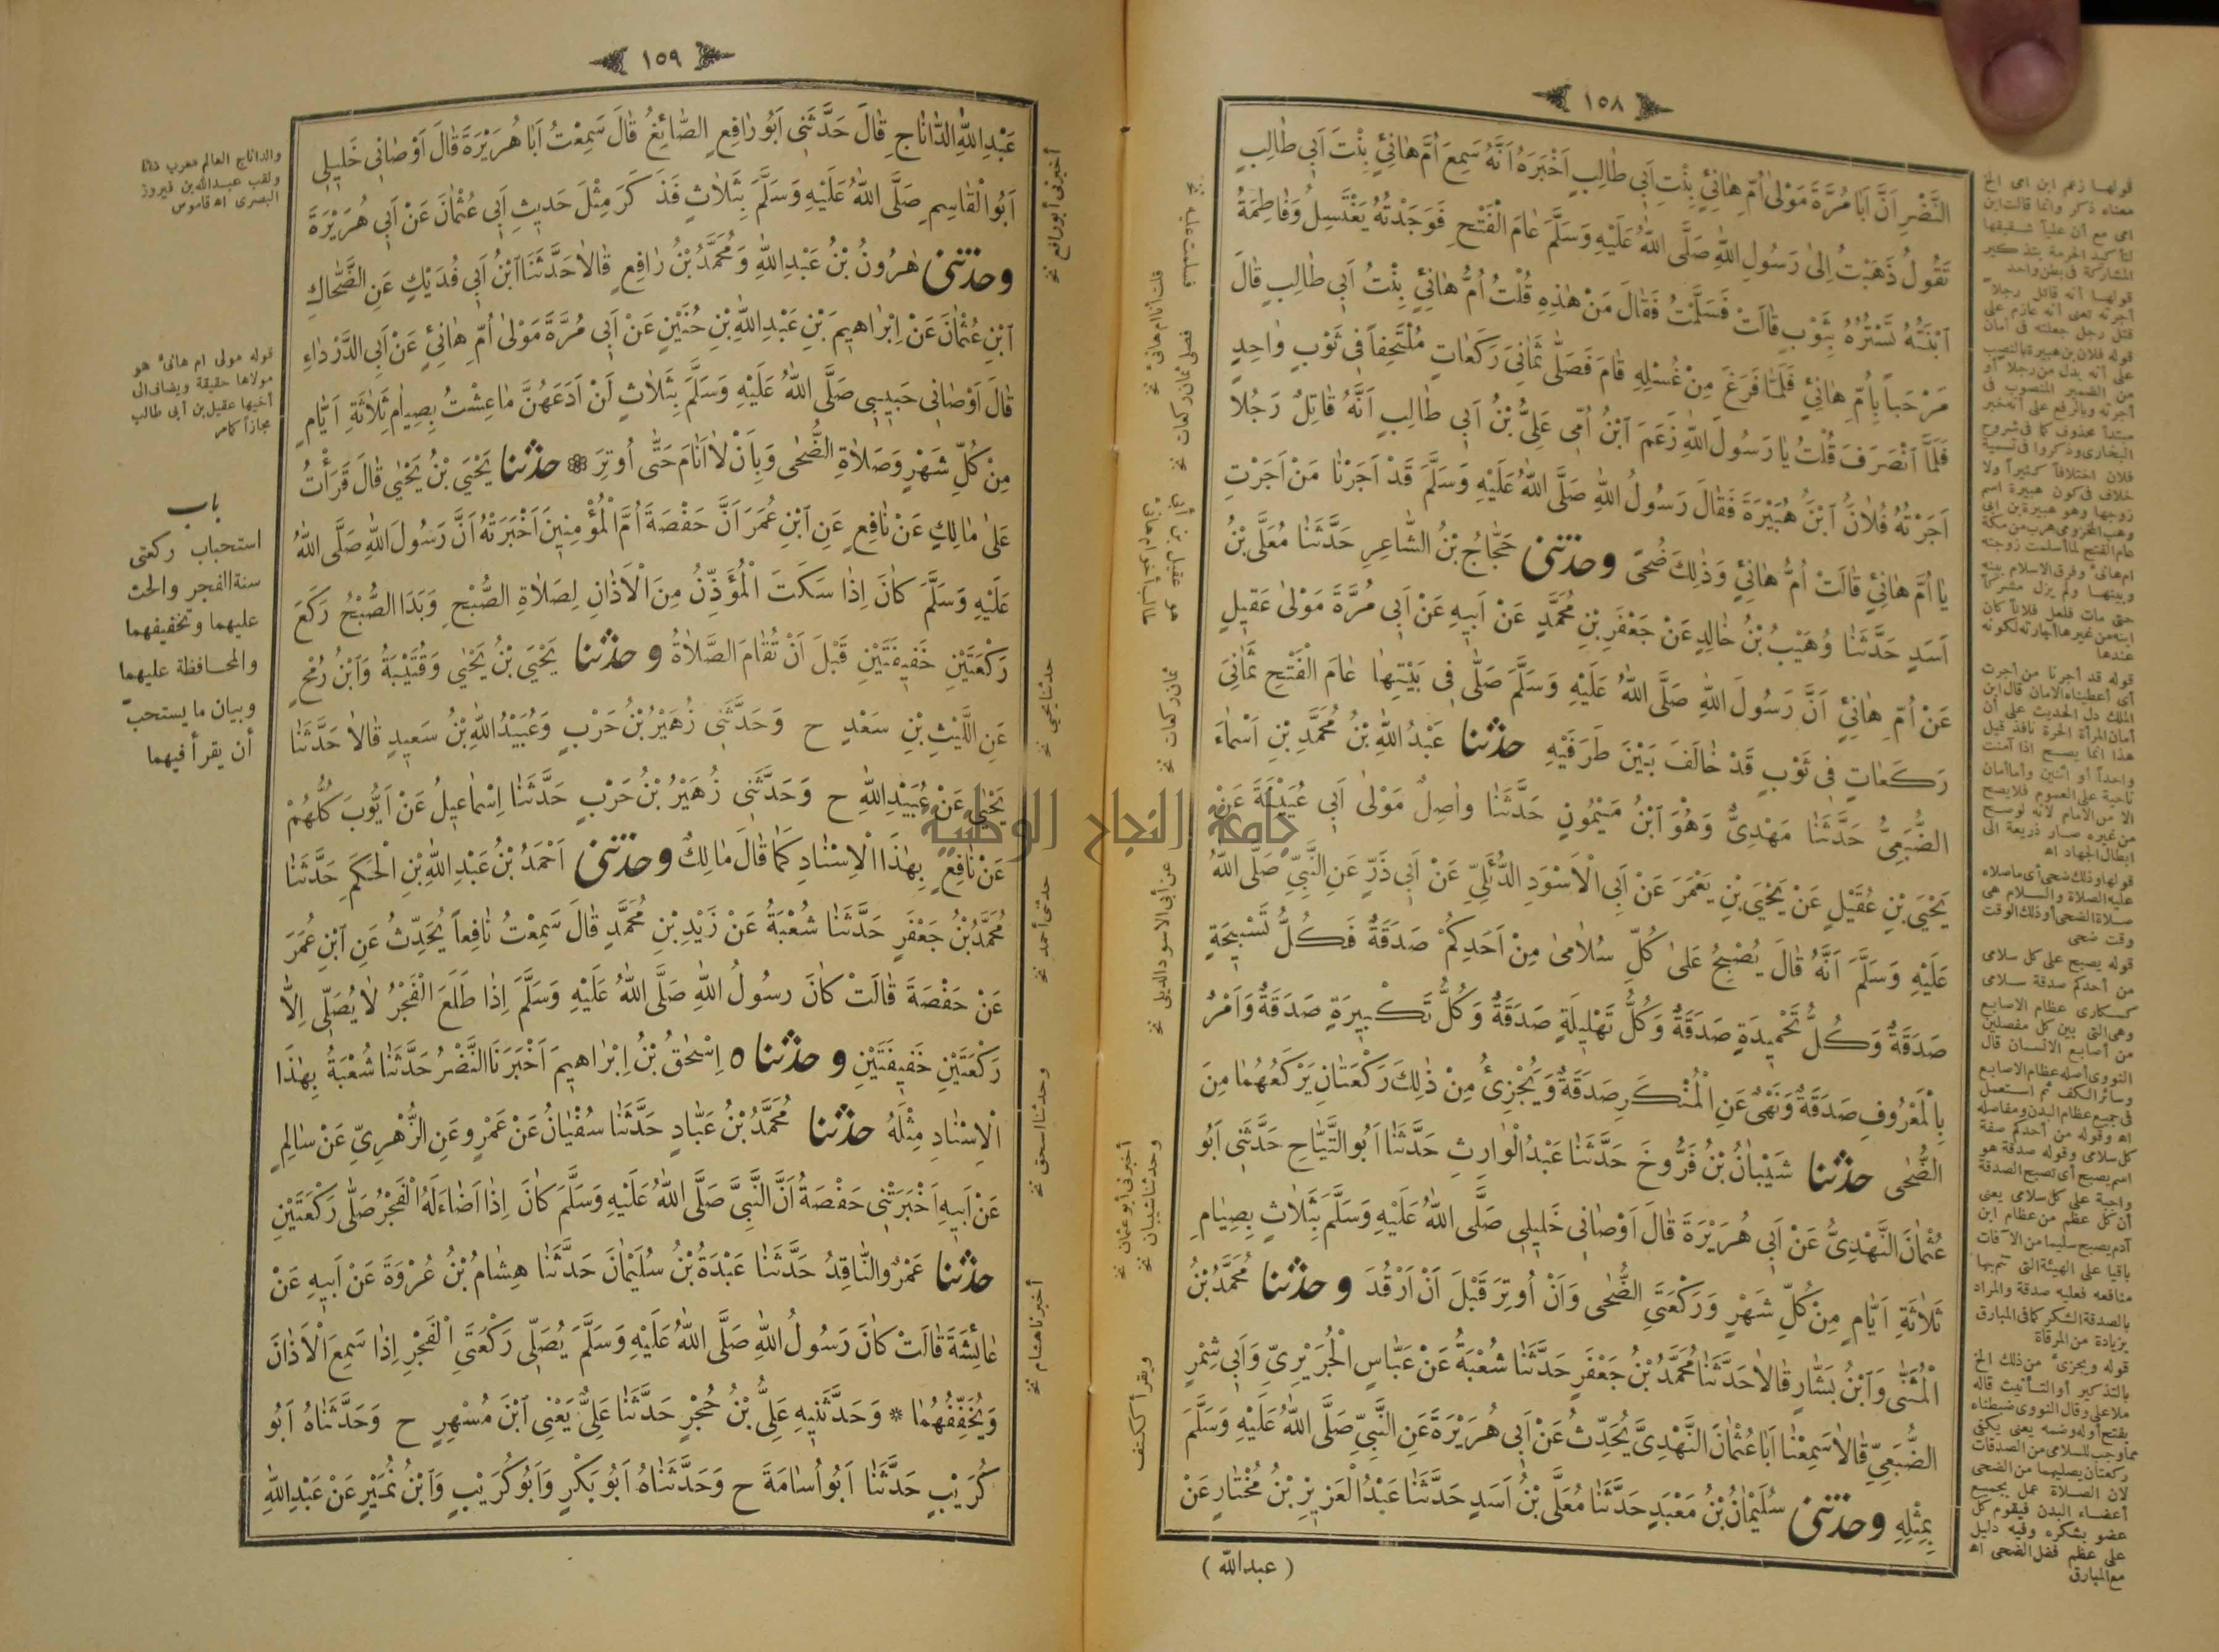 ١٥٨
النَّضْرِ اَنَّ اَبَا مُرَّةَ مَوْلىٰ اُمِّ هَانِئٍ بِنْتِ اَبِي طَالِبٍ اَخْبَرَهُ اَنَّهُ سَمِعَ اُمَّ هَانِئٍ بِنْتَ اَبِي طَالِبٍ
تَقُولُ ذَهَبْتُ اِلىٰ رَسُولِ اللهِ صَلَّى اللهُ عَلَيْهِ وَسَلَّمَ عَامَ الْفَتْحِ فَوَجَدْتُهُ يَغْتَسِلُ وَفَاطِمَةُ
ابْنَتُهُ تَسْتُرُهُ بِثَوْبٍ قَالَتْ فَسَلَّمْتُ فَقَالَ مَنْ هٰذِهِ قُلْتُ اُمُّ هَانِئٍ بِنْتُ اَبِي طَالِبٍ قَالَ
مَرْحَباً بِاُمِّ هَانِئٍ فَلَمَّا فَرَغَ مِنْ غُسْلِهِ قَامَ فَصَلَّى ثَمَانِيَ رَكَعَاتٍ مُلْتَحِفاً فِي ثَوْبٍ وَاحِدٍ
فَلَمَّا انْصَرَفَ قُلْتُ يَا رَسُولَ اللهِ زَعَمَ ابْنُ اُمِّي عَلِيُّ بْنُ اَبِي طَالِبٍ اَنَّهُ قَاتِلٌ رَجُلاً
اَجَرْتُهُ فُلَانُ ابْنُ هُبَيْرَةَ فَقَالَ رَسُولُ اللهِ صَلَّى اللهُ عَلَيْهِ وَسَلَّمَ قَدْ اَجَرْنَا مَنْ اَجَرْتِ
يَا اُمَّ هَانِئٍ قَالَتْ اُمُّ هَانِئٍ وَذٰلِكَ ضُحًى وحدثنى حَجَّاجُ بْنُ الشَّاعِرِ حَدَّثَنَا مُعَلَّى بْنُ
اَسَدٍ حَدَّثَنَا وُهَيْبُ بْنُ خَالِدٍ عَنْ جَعْفَرِ بْنِ مُحَمَّدٍ عَنْ اَبِيهِ عَنْ اَبِي مُرَّةَ مَوْلىٰ عَقِيلٍ
عَنْ اُمِّ هَانِئٍ اَنَّ رَسُولَ اللهِ صَلَّى اللهُ عَلَيْهِ وَسَلَّمَ صَلَّى فِي بَيْتِهَا عَامَ الْفَتْحِ ثَمَانِيَ
رَكَعَاتٍ فِي ثَوْبٍ قَدْ خَالَفَ بَيْنَ طَرَفَيْهِ حدثنا عَبْدُ اللهِ بْنُ مُحَمَّدِ بْنِ اَسْمَاءَ
الضُّبَعِيُّ حَدَّثَنَا مَهْدِيٌّ وَهُوَ ابْنُ مَيْمُونٍ حَدَّثَنَا وَاصِلٌ مَوْلىٰ اَبِي عُيَيْنَةَ عَنْ
يَحْيَى بْنِ عُقَيْلٍ عَنْ يَحْيَى بْنِ يَعْمَرَ عَنْ اَبِي الْاَسْوَدِ الدُّئَلِيِّ عَنْ اَبِي ذَرٍّ عَنِ النَّبِيِّ صَلَّى اللهُ
عَلَيْهِ وَسَلَّمَ اَنَّهُ قَالَ يُصْبِحُ عَلىٰ كُلِّ سُلَامىٰ مِنْ اَحَدِكُمْ صَدَقَةٌ فَكُلُّ تَسْبِيحَةٍ
صَدَقَةٌ وَكُلُّ تَحْمِيدَةٍ صَدَقَةٌ وَكُلُّ تَهْلِيلَةٍ صَدَقَةٌ وَكُلُّ تَكْبِيرَةٍ صَدَقَةٌ وَاَمْرٌ
بِالْمَعْرُوفِ صَدَقَةٌ وَنَهْيٌ عَنِ الْمُنْكَرِ صَدَقَةٌ وَيُجْزِئُ مِنْ ذٰلِكَ رَكْعَتَانِ يَرْكَعُهُمَا مِنَ
الضُّحٰى حدثنا شَيْبَانُ بْنُ فَرُّوخَ حَدَّثَنَا عَبْدُ الْوَارِثِ حَدَّثَنَا اَبُو التَّيَّاحِ حَدَّثَنِي اَبُو
عُثْمَانَ النَّهْدِيُّ عَنْ اَبِي هُرَيْرَةَ قَالَ اَوْصَانِي خَلِيلِي صَلَّى اللهُ عَلَيْهِ وَسَلَّمَ بِثَلَاثٍ بِصِيَامِ
ثَلَاثَةِ اَيَّامٍ مِنْ كُلِّ شَهْرٍ وَرَكْعَتَيِ الضُّحٰى وَاَنْ اُوتِرَ قَبْلَ اَنْ اَرْقُدَ وحدثنا مُحَمَّدُ بْنُ
الْمُثَنَّى وَابْنُ بَشَّارٍ قَالَا حَدَّثَنَا مُحَمَّدُ بْنُ جَعْفَرٍ حَدَّثَنَا شُعْبَةُ عَنْ عَبَّاسٍ الْجُرَيْرِيِّ وَاَبِي شِمْرٍ
الضُّبَعِيِّ قَالَا سَمِعْنَا اَبَا عُثْمَانَ النَّهْدِيَّ يُحَدِّثُ عَنْ اَبِي هُرَيْرَةَ عَنِ النَّبِيِّ صَلَّى اللهُ عَلَيْهِ وَسَلَّمَ
بِمِثْلِهِ وحدثنى سُلَيْمَانُ بْنُ مَعْبَدٍ حَدَّثَنَا مُعَلَّى بْنُ اَسَدٍ حَدَّثَنَا عَبْدُ الْعَزِيزِ بْنُ مُخْتَارٍ عَنْ
( عبدالله )
قولها زعم ابن امى الخ
معناه ذكر وانما قالت ابن
امى مع أن علياً شقيقها
لتأكيد الحرمة بتذكير
المشاركة فى بطن واحد
قولها أنه قاتل رجلاً
أجرته تعنى أنه عازم على
قتل رجل جعلته فى أمان
قوله فلان بن هبيرة بالنصب
على أنه بدل من رجلاً أو
من الضمير المنصوب فى
أجرته وبالرفع على أنه خبر
مبتدأ محذوف كما فى شروح
البخارى وذكروا فى تسمية
فلان اختلافاً كثيراً ولا
خلاف فى كون هبيرة اسم
زوجها وهو هبيرة بن ابى
وهب المخزومى هرب من مكة
عام الفتح لما أسلمت زوجته
ام هانئ وفرق الاسلام بينه
وبينها ولم يزل مشركاً
حتى مات فلعل فلاناً كان
ابنه من غيرها أجارته لكونه
عندها
قوله قد أجرنا من أجرت
أى أعطيناه الامان قال ابن
الملك دل الحديث على أن
أمان المرأة الحرة نافذ قيل
هذا انما يصح اذا آمنت
واحداً أو اثنين وأما أمان
ناحية على العموم فلا يصح
الا من الامام لانه لو صح
من غيره صار ذريعة الى
ابطال الجهاد اه
قولها وذلك ضحى أى ما صلاه
عليه الصلاة والسلام هى
صلاة الضحى أو ذلك الوقت
وقت ضحى
قوله يصبح على كل سلامى
من أحدكم صدقة سلامى
كسكارى عظام الاصابع
وهى التى بين كل مفصلين
من أصابع الانسان قال
النووى أصله عظام الاصابع
وسائر الكف ثم استعمل
فى جميع عظام البدن ومفاصله
اه وقوله من أحدكم صفة
كل سلامى وقوله صدقة هو
اسم يصبح أى تصبح الصدقة
واجبة على كل سلامى يعنى
أن كل عظم من عظام ابن
آدم يصبح سليما من الآفات
باقيا على الهيئة التى تتم بها
منافعه فعليه صدقة والمراد
بالصدقة الشكر كما فى المبارق
بزيادة من المرقاة
قوله ويجزئ من ذلك الخ
بالتذكير أو التأنيث قاله
ملا على وقال النووى ضبطناه
بفتح أوله وضمه يعنى يكفى
مما وجب للسلامى من الصدقات
ركعتان يصليهما من الضحى
لان الصلاة عمل بجميع
أعضاء البدن فيقوم كل
عضو بشكره وفيه دليل
على عظم فضل الضحى اه
مع المبارق
فسلمت عليه نخ
قلت أنا ام هانئ نخ
فصلى ثمان ركعات نخ
هو عقيل بن أبى
طالب أخو ام هانئ
ثمان ركعات نخ
عن أبى الاسود الديلى نخ
وحدثنا شيبان نخ
أخبرنى أبو عثمان نخ
ويقرأ ككتف
١٥٩
عَبْدِ اللهِ الدَّانَاجِ قَالَ حَدَّثَنِي اَبُو رَافِعٍ الصَّائِغُ قَالَ سَمِعْتُ اَبَا هُرَيْرَةَ قَالَ اَوْصَانِي خَلِيلِي
اَبُو الْقَاسِمِ صَلَّى اللهُ عَلَيْهِ وَسَلَّمَ بِثَلَاثٍ فَذَكَرَ مِثْلَ حَدِيثِ اَبِي عُثْمَانَ عَنْ اَبِي هُرَيْرَةَ
وحدثنى هٰرُونُ بْنُ عَبْدِ اللهِ وَمُحَمَّدُ بْنُ رَافِعٍ قَالَا حَدَّثَنَا ابْنُ اَبِي فُدَيْكٍ عَنِ الضَّحَّاكِ
ابْنِ عُثْمَانَ عَنْ اِبْرَاهِيمَ بْنِ عَبْدِ اللهِ بْنِ حُنَيْنٍ عَنْ اَبِي مُرَّةَ مَوْلىٰ اُمِّ هَانِئٍ عَنْ اَبِي الدَّرْدَاءِ
قَالَ اَوْصَانِي حَبِيبِي صَلَّى اللهُ عَلَيْهِ وَسَلَّمَ بِثَلَاثٍ لَنْ اَدَعَهُنَّ مَا عِشْتُ بِصِيَامِ ثَلَاثَةِ اَيَّامٍ
مِنْ كُلِّ شَهْرٍ وَصَلَاةِ الضُّحٰى وَبِاَنْ لَا اَنَامَ حَتّٰى اُوتِرَ ❁ حدثنا يَحْيَى بْنُ يَحْيٰى قَالَ قَرَأْتُ
عَلىٰ مَالِكٍ عَنْ نَافِعٍ عَنِ ابْنِ عُمَرَ اَنَّ حَفْصَةَ اُمَّ الْمُؤْمِنِينَ اَخْبَرَتْهُ اَنَّ رَسُولَ اللهِ صَلَّى اللهُ
عَلَيْهِ وَسَلَّمَ كَانَ اِذَا سَكَتَ الْمُؤَذِّنُ مِنَ الْاَذَانِ لِصَلَاةِ الصُّبْحِ وَبَدَا الصُّبْحُ رَكَعَ
رَكْعَتَيْنِ خَفِيفَتَيْنِ قَبْلَ اَنْ تُقَامَ الصَّلَاةُ وحدثنا يَحْيَى بْنُ يَحْيٰى وَقُتَيْبَةُ وَابْنُ رُمْحٍ
عَنِ اللَّيْثِ بْنِ سَعْدٍ ح وَحَدَّثَنِي زُهَيْرُ بْنُ حَرْبٍ وَعُبَيْدُ اللهِ بْنُ سَعِيدٍ قَالَا حَدَّثَنَا
يَحْيٰى عَنْ عُبَيْدِ اللهِ ح وَحَدَّثَنِي زُهَيْرُ بْنُ حَرْبٍ حَدَّثَنَا اِسْمَاعِيلُ عَنْ اَيُّوبَ كُلُّهُمْ
عَنْ نَافِعٍ بِهٰذَا الْاِسْنَادِ كَمَا قَالَ مَالِكٌ وحدثنى اَحْمَدُ بْنُ عَبْدِ اللهِ بْنِ الْحَكَمِ حَدَّثَنَا
مُحَمَّدُ بْنُ جَعْفَرٍ حَدَّثَنَا شُعْبَةُ عَنْ زَيْدِ بْنِ مُحَمَّدٍ قَالَ سَمِعْتُ نَافِعاً يُحَدِّثُ عَنِ ابْنِ عُمَرَ
عَنْ حَفْصَةَ قَالَتْ كَانَ رَسُولُ اللهِ صَلَّى اللهُ عَلَيْهِ وَسَلَّمَ اِذَا طَلَعَ الْفَجْرُ لَا يُصَلِّي اِلَّا
رَكْعَتَيْنِ خَفِيفَتَيْنِ وحدثناه اِسْحٰقُ بْنُ اِبْرَاهِيمَ اَخْبَرَنَا النَّضْرُ حَدَّثَنَا شُعْبَةُ بِهٰذَا
الْاِسْنَادِ مِثْلَهُ حدثنا مُحَمَّدُ بْنُ عَبَّادٍ حَدَّثَنَا سُفْيَانُ عَنْ عَمْرٍو عَنِ الزُّهْرِيِّ عَنْ سَالِمٍ
عَنْ اَبِيهِ اَخْبَرَتْنِي حَفْصَةُ اَنَّ النَّبِيَّ صَلَّى اللهُ عَلَيْهِ وَسَلَّمَ كَانَ اِذَا اَضَاءَ لَهُ الْفَجْرُ صَلَّى رَكْعَتَيْنِ
حدثنا عَمْرٌو النَّاقِدُ حَدَّثَنَا عَبْدَةُ بْنُ سُلَيْمَانَ حَدَّثَنَا هِشَامُ بْنُ عُرْوَةَ عَنْ اَبِيهِ عَنْ
عَائِشَةَ قَالَتْ كَانَ رَسُولُ اللهِ صَلَّى اللهُ عَلَيْهِ وَسَلَّمَ يُصَلِّي رَكْعَتَيِ الْفَجْرِ اِذَا سَمِعَ الْاَذَانَ
وَيُخَفِّفُهُمَا * وَحَدَّثَنِيهِ عَلِيُّ بْنُ حُجْرٍ حَدَّثَنَا عَلِيٌّ يَعْنِي ابْنَ مُسْهِرٍ ح وَحَدَّثَنَاهُ اَبُو
كُرَيْبٍ حَدَّثَنَا اَبُو اُسَامَةَ ح وَحَدَّثَنَاهُ اَبُو بَكْرٍ وَاَبُو كُرَيْبٍ وَابْنُ نُمَيْرٍ عَنْ عَبْدِ اللهِ
أخبرنى أبو رافع نخ
حدثنا يحيى نخ
حدثنى أحمد نخ
وحدثنا اسحق نخ
أخبرنا هشام نخ
والداناج العالم معرب دانا
ولقب عبدالله بن فيروز
البصرى اه قاموس
قوله مولى ام هانئ هو
مولاها حقيقة ويضاف الى
أخيها عقيل بن أبى طالب
مجازاً كما مر
باب
استحباب ركعتى
سنة الفجر والحث
عليهما وتخفيفهما
والمحافظة عليهما
وبيان ما يستحب
أن يقرأ فيهما
جامعة النجاح الوطنية